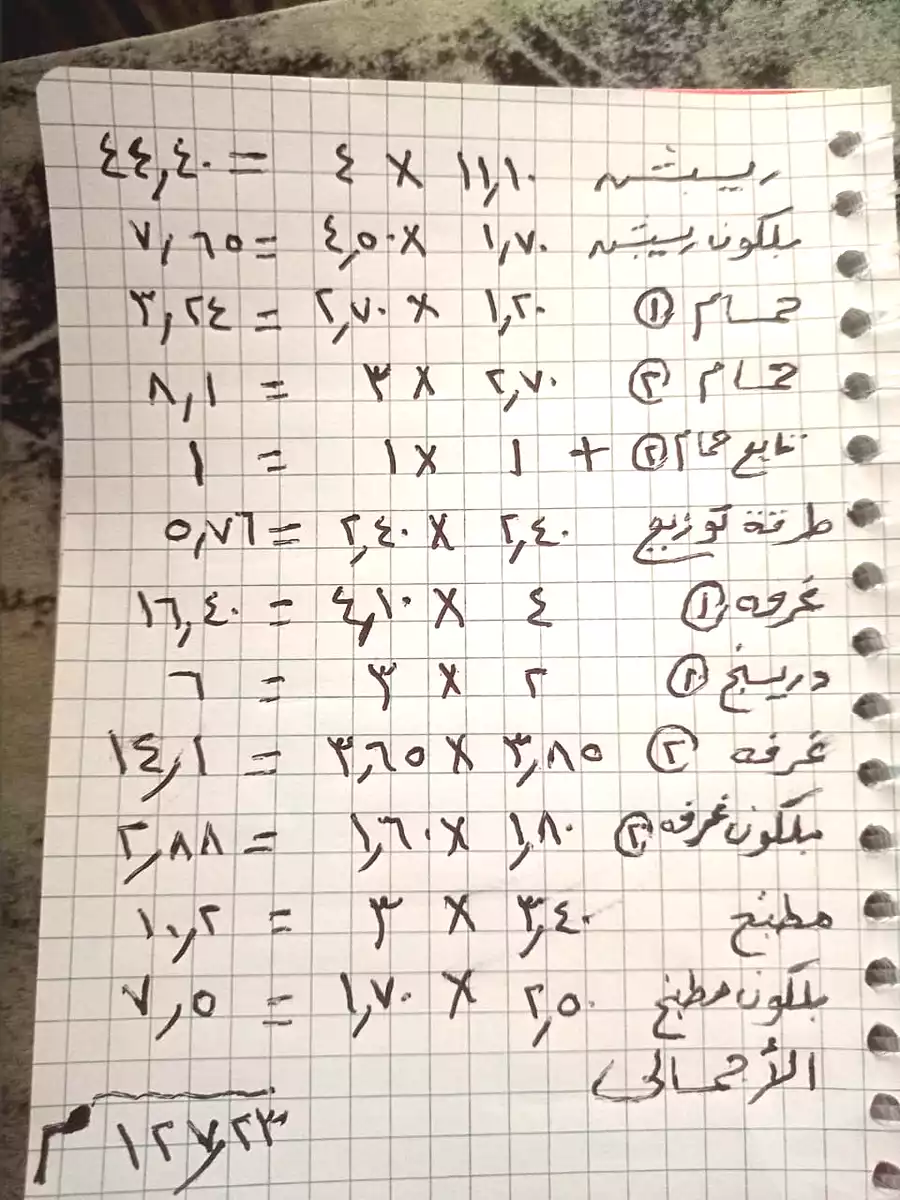 ريسبشن ١١,١٠ × ٤ = ٤٤,٤٠
بلكون ريسبشن ١,٧٠ × ٤,٥٠ = ٧,٦٥
حمام ① ١,٢٠ × ٢,٧٠ = ٣,٢٤
حمام ② ٢,٧٠ × ٣ = ٨,١
تابع حمام ② + ١ × ١ = ١
طرقة توزيع ٢,٤٠ × ٢,٤٠ = ٥,٧٦
غرفه ① ٤ × ٤,١٠ = ١٦,٤٠
دريسنج ① ٢ × ٣ = ٦
غرفه ② ٣,٨٥ × ٣,٦٥ = ١٤,١
بلكون غرفه ② ١,٨٠ × ١,٦٠ = ٢,٨٨
مطبخ ٣,٤٠ × ٣ = ١٠,٢
بلكون مطبخ ٢,٥٠ × ١,٧٠ = ٧,٥
الأجمالى
١٢٧,٢٣ م